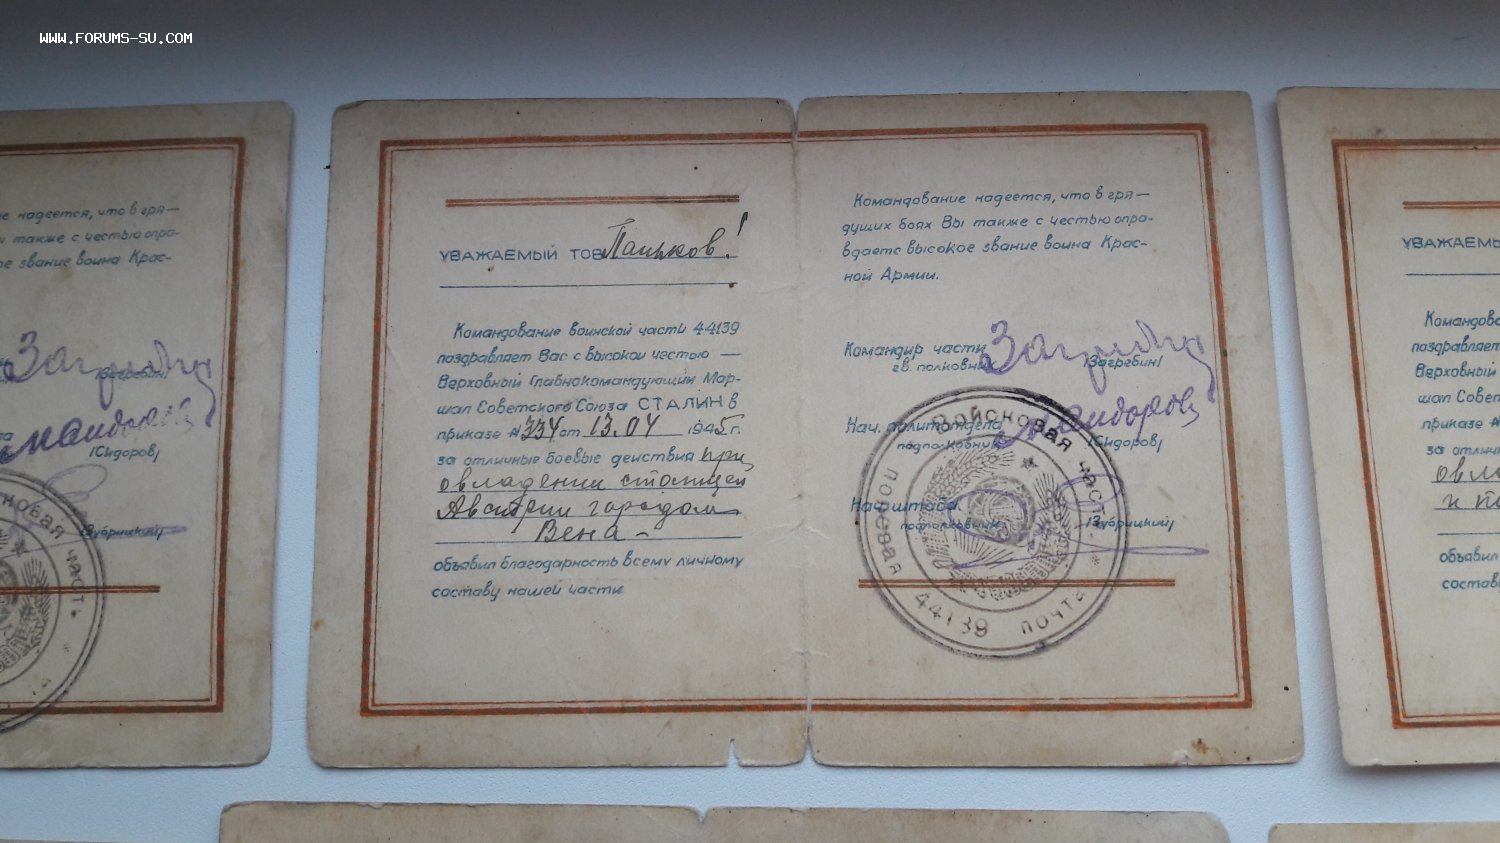 WWW.FORUMS-SU.COM
е надеется, что в гря—
ы также с честью опра-
ое звание воина Крас-
Загребин
/Загребин/
Сидоров
/Сидоров/
/Зубрицкий/
ковая часть
УВАЖАЕМЫЙ ТОВ Паньков!
Командование воинской части 44139
поздравляет Вас с высокой честью —
Верховный Главнокомандующий Мар-
шал Советского Союза СТАЛИН в
приказе № 334 от 13.04 1945 г.
за отличные боевые действия при
овладении столицей
Австрии городом
Вена —
объявил благодарность всему личному
составу нашей части.
Командование надеется, что в гря—
дущих боях Вы также с честью опра-
вдаете высокое звание воина Крас-
ной Армии.
Командир части Загребин
гв. полковник /Загребин/
Нач. политотдела Сидоров
подполковник /Сидоров/
Нач. штаба
подполковник /Зубрицкий/
Войсковая часть * полевая почта 44139
УВАЖАЕМЫ
Командова
поздравляет
Верховный
шал Совет
приказе №
за отличн
овла
и п
объявил
состав